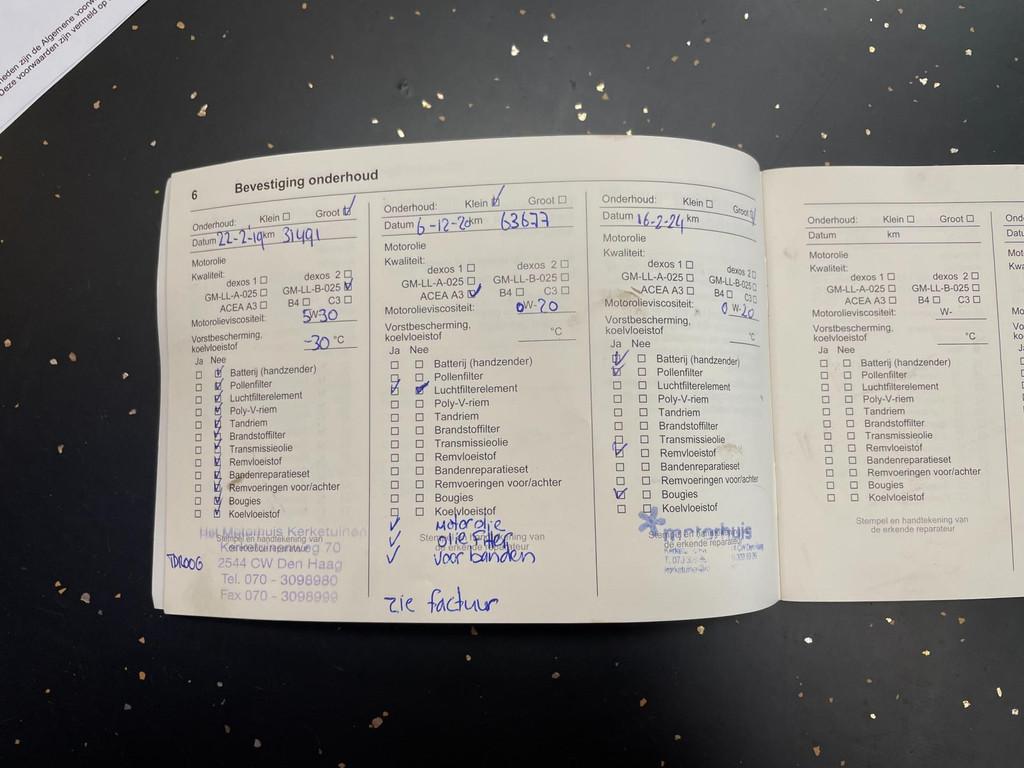 heden zijn de Algemene voorw
Deze voorwaarden zijn vermeld op
6 Bevestiging onderhoud
Onderhoud: Klein Groot
Datum 22-2-19 km 31491
Motorolie
Kwaliteit:
dexos 1 dexos 2
GM-LL-A-025 GM-LL-B-025
ACEA A3 B4 C3
Motorolieviscositeit: 5W30
Vorstbescherming,
koelvloeistof -30 °C
Ja Nee
Batterij (handzender)
Pollenfilter
Luchtfilterelement
Poly-V-riem
Tandriem
Brandstoffilter
Transmissieolie
Remvloeistof
Bandenreparatieset
Remvoeringen voor/achter
Bougies
Koelvloeistof
Stempel en handtekening van
de erkende reparateur
Het Motorhuis Kerketuinen
Kerketuinenweg 70
2544 CW Den Haag
Tel. 070 - 3098980
Fax 070 - 3098999
TDROOG
Onderhoud: Klein Groot
Datum 6-12-20 km 63677
Motorolie
Kwaliteit:
dexos 1 dexos 2
GM-LL-A-025 GM-LL-B-025
ACEA A3 B4 C3
Motorolieviscositeit: 0W-20
Vorstbescherming,
koelvloeistof °C
Ja Nee
Batterij (handzender)
Pollenfilter
Luchtfilterelement
Poly-V-riem
Tandriem
Brandstoffilter
Transmissieolie
Remvloeistof
Bandenreparatieset
Remvoeringen voor/achter
Bougies
Koelvloeistof
Motorolie
Stempel en handtekening van
olie filter
de erkende reparateur
voor banden
zie factuur
Onderhoud: Klein Groot
Datum 16-2-24 km
Motorolie
Kwaliteit:
dexos 1 dexos 2
GM-LL-A-025 GM-LL-B-025
ACEA A3 B4 C3
Motorolieviscositeit: 0W-20
Vorstbescherming,
koelvloeistof °C
Ja Nee
Batterij (handzender)
Pollenfilter
Luchtfilterelement
Poly-V-riem
Tandriem
Brandstoffilter
Transmissieolie
Remvloeistof
Bandenreparatieset
Remvoeringen voor/achter
Bougies
Koelvloeistof
motorhuis
Stempel en handtekening van
de erkende reparateur
Onderhoud: Klein Groot
Datum km
Motorolie
Kwaliteit:
dexos 1 dexos 2
GM-LL-A-025 GM-LL-B-025
ACEA A3 B4 C3
Motorolieviscositeit: W-
Vorstbescherming,
koelvloeistof °C
Ja Nee
Batterij (handzender)
Pollenfilter
Luchtfilterelement
Poly-V-riem
Tandriem
Brandstoffilter
Transmissieolie
Remvloeistof
Bandenreparatieset
Remvoeringen voor/achter
Bougies
Koelvloeistof
Stempel en handtekening van
de erkende reparateur